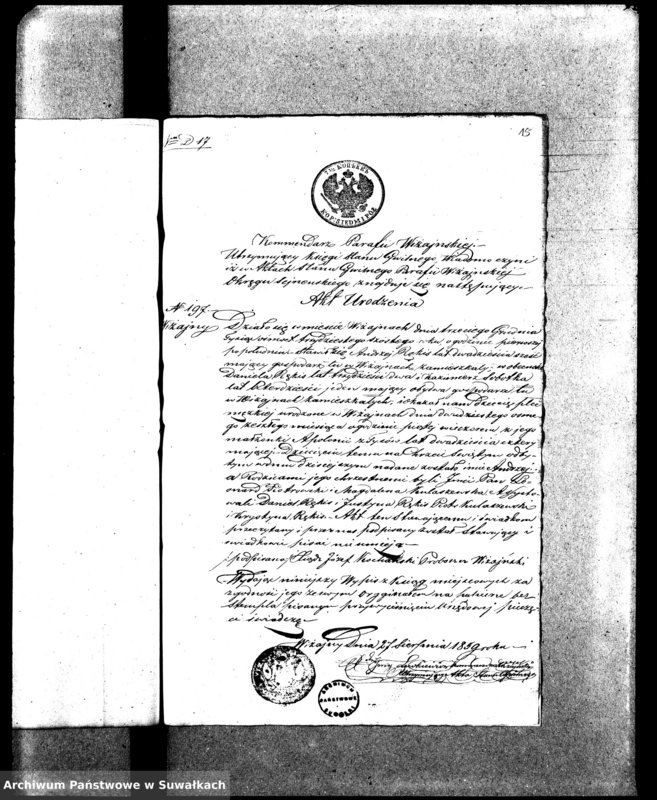 D 17
15
7½ КОПѢЕКЪ
KOP. SIEDM I PÓŁ
Kommendarz Parafii Wiżajńskiej
Utrzymujący Księgi Stanu Cywilnego, Wiadomo czyni
iż w Aktach Stanu Cywilnego Parafii Wiżajńskiej
Okręgu Sejneńskiego znajduje się następujący
Akt Urodzenia
№ 197
Wiżajny
Działo się w mieście Wiżajnach dnia trzeciego Grudnia
tysiąc ośmset trzydziestego szóstego roku o godzinie pierwszej
po południu Stawił się Andrzej Rękis lat dwadzieścia
mający gospodarz tu w Wiżajnach zamieszkały, w obecności
Daniela Rękis lat trzydzieści dwa i Kazimierz Sobotka
lat czterdzieści jeden mający obydwa gospodarze tu
w Wiżajnach zamieszkałych, i okazał nam dziecię płci
męzkiej urodzone w Wiżajnach dnia dwudziestego ósmego
zeszłego miesiąca o godzinie piątej wieczorem z jego
małżonki Apolonii z lat dwadzieścia cztery
mającej. Dziecięciu temu na Chrzcie Świętym odbytym
w dniu dzisiejszym nadane zostało imię Andrzej,
a Rodzicami jego chrzestnemi byli Jmci Pan
Piotrowski i Magdalena Kułaszewska, Assystowali
Daniel Rękis i Justyna Rękis Piotr Kułaszewski
i Krystyna Rękis. Akt ten Stawającemu i świadkom
przeczytany i przez nas podpisany został Stawający i
świadkowie pisać nie umieją
podpisano Xiądz Józef Kochański Proboszcz Wiżajński
Wydając niniejszy Wypis z Ksiąg miejscowych za
zgodność jego z oryginałem na papierze bez
Stempla pisanym przy wyciśnięciu Urzędowej pieczęci
świadczę
Wiżajny Dnia 27 Sierpnia 1839 roku
ARCHIWUM
PAŃSTWOWE
SUWAŁKI
Archiwum Państwowe w Suwałkach